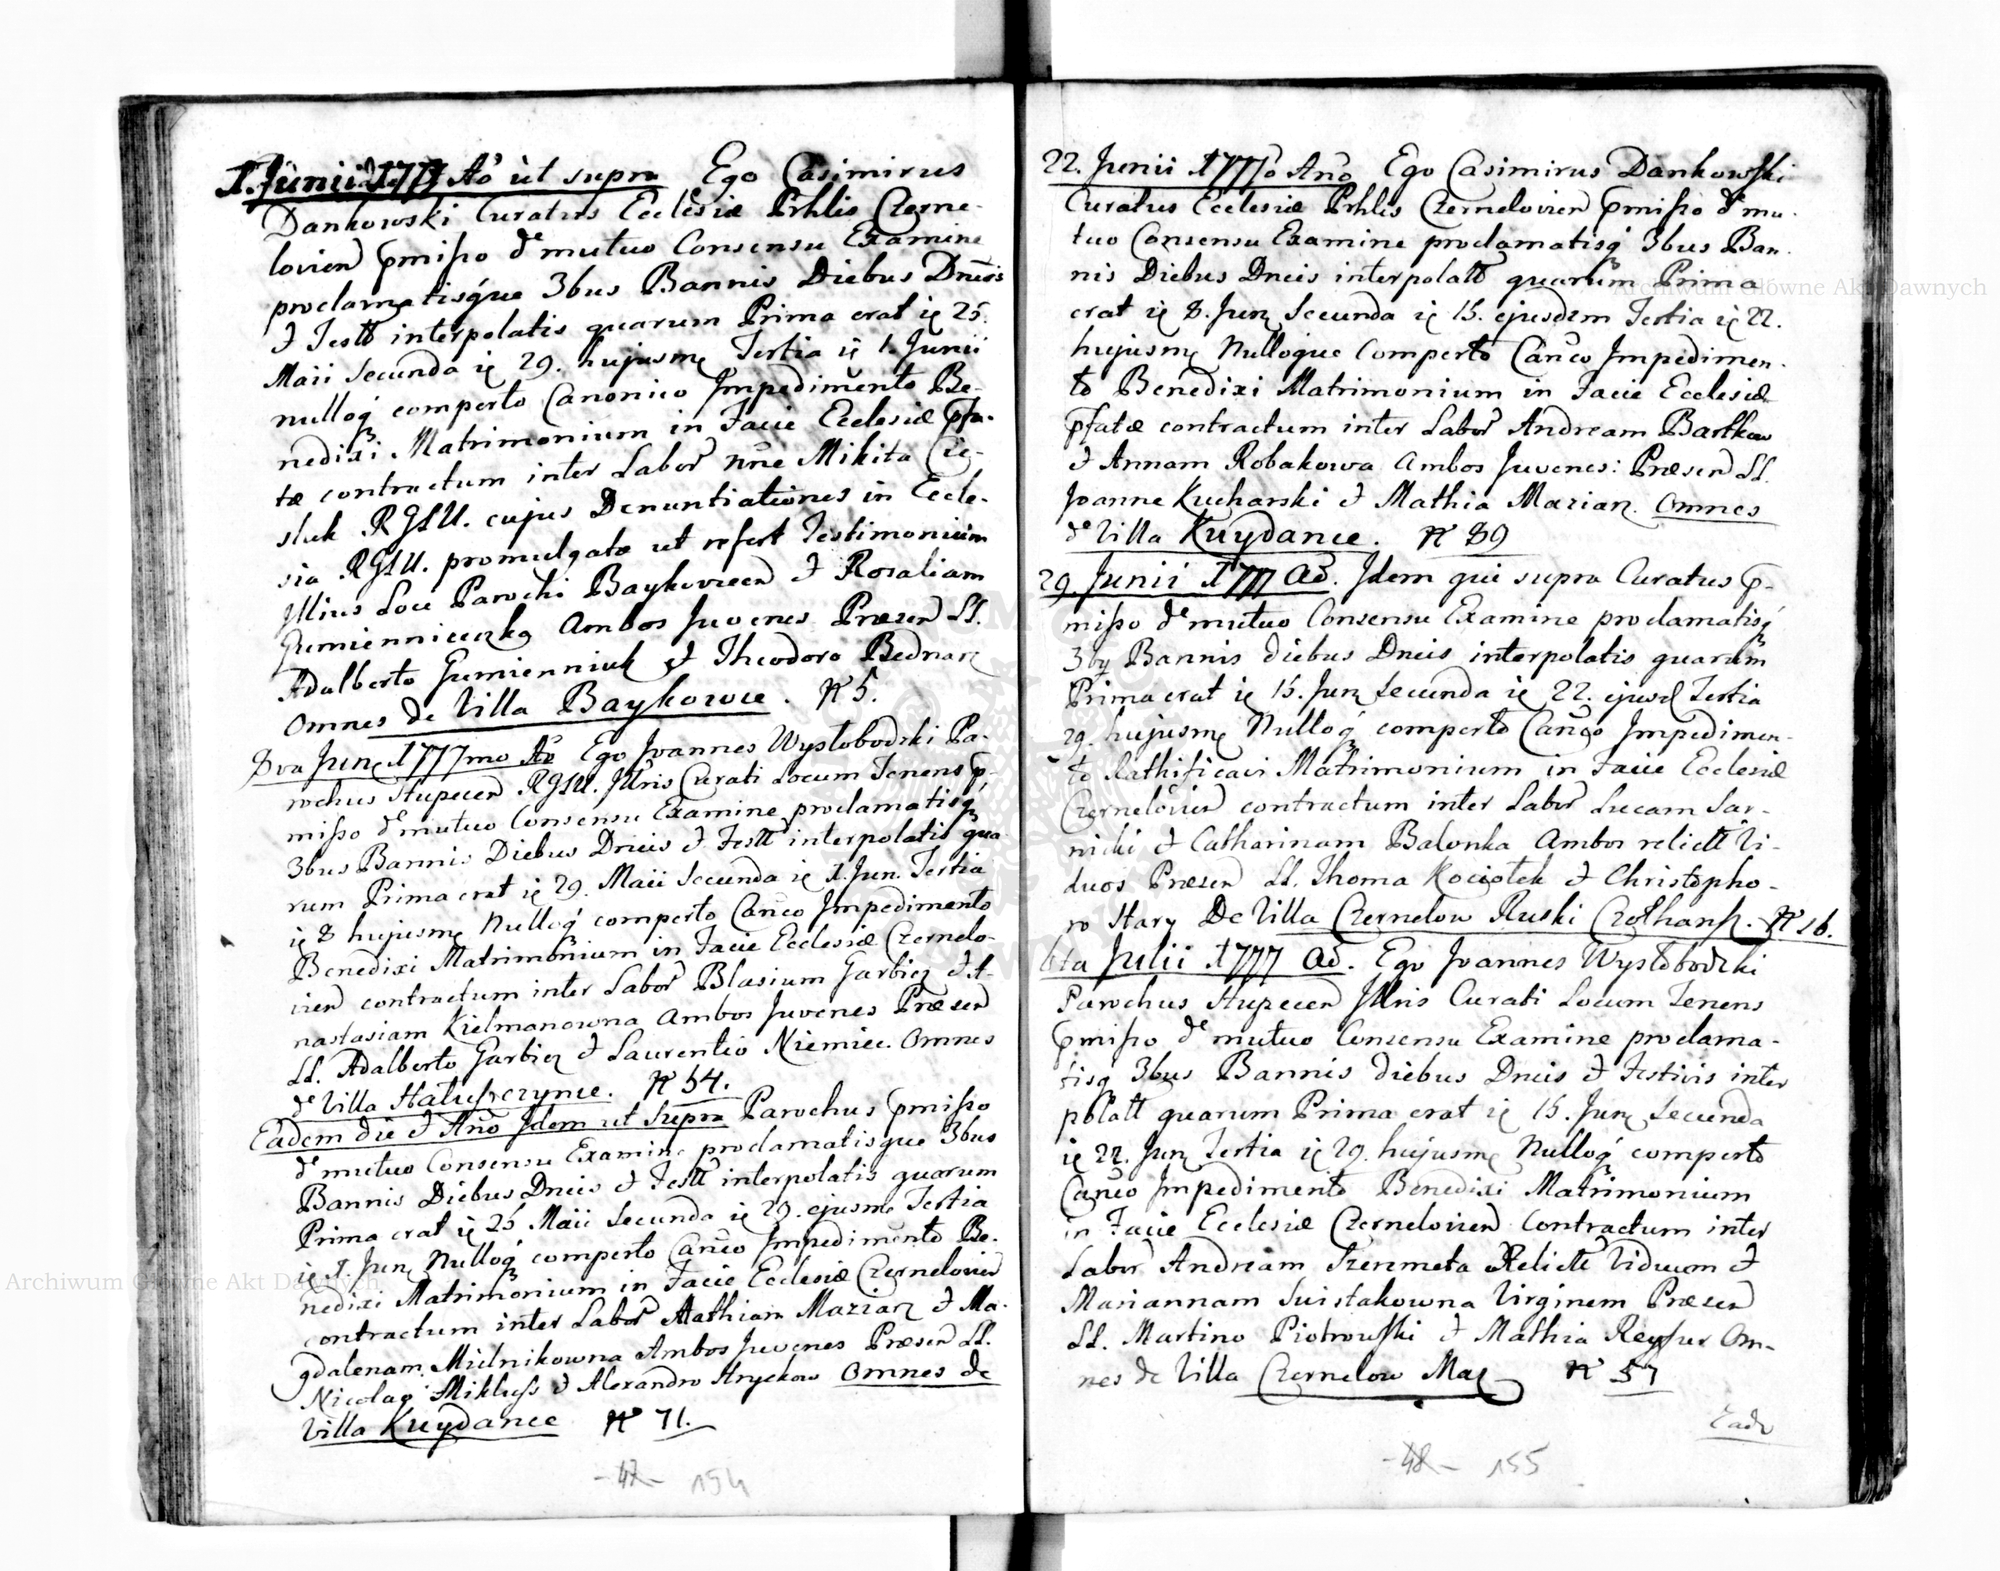 1. Junii 1777 Ao ut supra Ego Casimirus
Dankowski Curatus Ecclesiæ Prhlis Czerne-
lovien pmisso de mutuo Consensu Examine
proclamatisque 3bus Bannis Diebus Dnicis
et Festt interpolatis quarum Prima erat ię 25.
Maii Secunda ię 29. hujusmę Tertia ię 1. Junii
nulloq comperto Canonico Impedimento Be-
nedixi Matrimonium in Facie Ecclesiæ pfa-
tæ contractum inter Labor nne Mikita
sluk RGLU. cujus Denuntiationes in Eccle-
sia RGLU. promulgatæ ut refert Testimonium
Illius Loci Parochi Baykovicen et Rosaliam
Gumienniczką Ambos Juvenes Præsen LL.
Adalberto Gumienniuk et Theodoro Bednarz
Omnes de Villa Baykowce. N 5.
8va Junę 1777mo Ao Ego Joannes Wysłobodzki Pa-
rochus Stupecen RGLU. Illris Curati Locum Tenens p-
misso de mutuo Consensu Examine proclamatisq
3bus Bannis Diebus Dnicis et Festt interpolatis qua-
rum Prima erat ię 29. Maii Secunda ię 1. Jun. Tertia
ię 8 hujusmę Nulloq comperto Canco Impedimento
Benedixi Matrimonium in Facie Ecclesiæ Czernelo-
vien contractum inter Labor Blasium Garbicz et A-
nastasiam Kielmanowna Ambos Juvenes Præsen
LL. Adalberto Garbicz et Laurentio Niemiec. Omnes
de Villa Hałuszczynce. N 54.
Eadem die et Ano Idem ut Supra Parochus pmisso
de mutuo Consensu Examine proclamatisque 3bus
Bannis Diebus Dnicis et Festt interpolatis quarum
Prima erat ię 25 Maii Secunda ię 29. ejusmę Tertia
ię 1. Junę Nulloq comperto Canco Impedimento Be-
nedixi Matrimonium in Facie Ecclesiæ Czernelovien
contractum inter Labor Mathiam Maziarz et Ma-
gdalenam Mielnikowna Ambos Juvenes Præsen LL.
Nicolao Mikluss et Alexandro Hryckow Omnes de
Villa Kuydance N 71.
-47- 154
22. Junii 1777o Ano Ego Casimirus Dankowski
Curatus Ecclesiæ Prhlis Czernelovien pmisso de mu-
tuo Consensu Examine proclamatisq 3bus Ban-
nis Diebus Dnicis interpolatt quarum Prima
erat ię 8. Junę Secunda ię 15. ejusdem Tertia ię 22.
hujusmę Nulloque Comperto Canco Impedimen-
to Benedixi Matrimonium in Facie Ecclesiæ
pfatæ contractum inter Labor Andream Bartkow
et Annam Robakowa Ambos Juvenes: Præsen LL.
Joanne Kucharski et Mathia Maziarz. Omnes
de Villa Kuydance. N 89
29. Junii 1777 Ao. Idem qui supra Curatus p-
misso de mutuo Consensu Examine proclamatisq
3bq Bannis diebus Dnicis interpolatis quarum
Prima erat ię 15. Junę Secunda ię 22. ejusd Tertia
29. hujusmę Nulloq comperto Canco Impedimen-
to Rathificavi Matrimonium in Facie Ecclesiæ
Czernelovien contractum inter Labor Lucam Sar-
nicki et Catharinam Balonka Ambos relictt Vi-
duos Præsen LL. Thoma Kociołek et Christopho-
ro Stary De Villa Czernelow Ruski N 16.
6ta Julii 1777 Ao. Ego Joannes Wysłobodzki
Parochus Stupecen Illris Curati Locum Tenens
pmisso de mutuo Consensu Examine proclama-
tisq 3bus Bannis diebus Dnicis et Festivis inter
polatt quarum Prima erat ię 15. Junę Secunda
ię 22. Junę Tertia ię 29. hujusmę Nulloq comperto
Canco Impedimento Benedixi Matrimonium
in Facie Ecclesiæ Czernelovien Contractum inter
Labor Andream Szermeta Relictt Viduum et
Mariannam Swistakowna Virginem Præsen
LL. Martino Piotrowski et Mathia Reyfur Om-
nes de Villa Czernelow Maz N 57
Eade
-48- 155
Archiwum Główne Akt Dawnych
Archiwum Główne Akt Dawnych